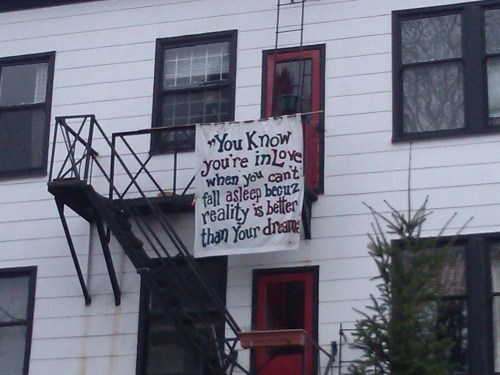 "You Know
you're in Love
when you can't
fall asleep becuz
reality is better
than your dreams